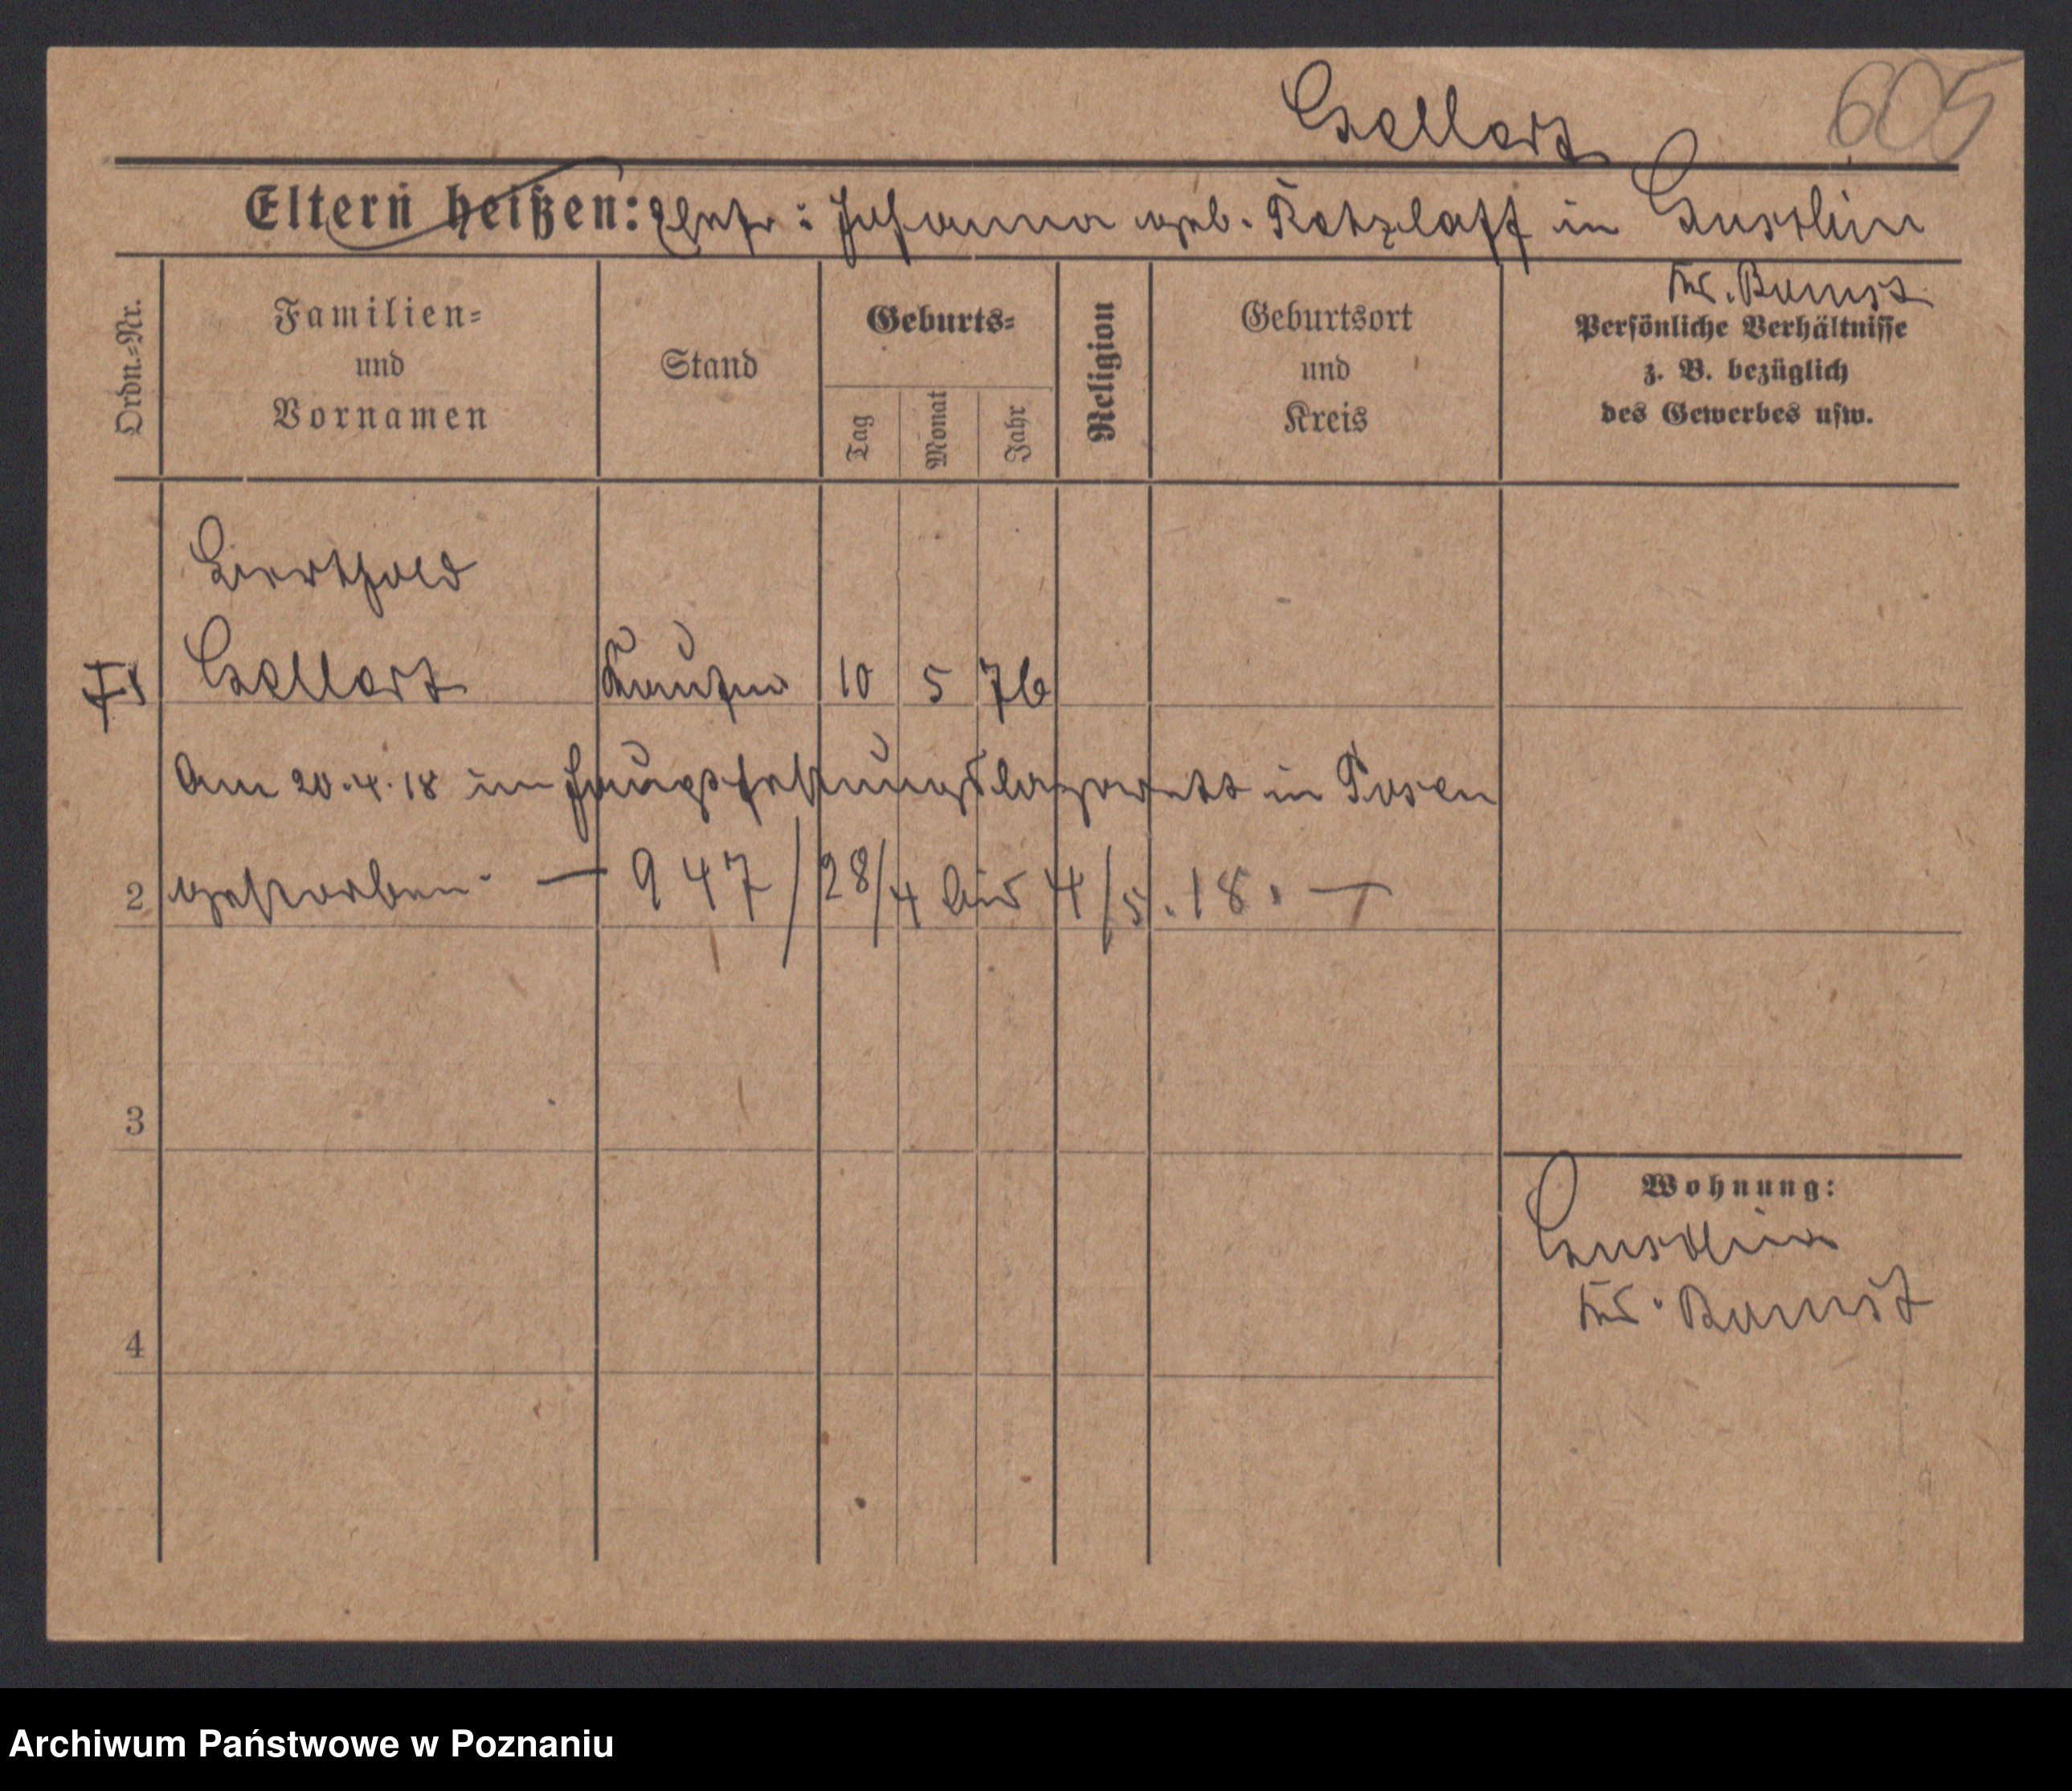 Gellert
605
Eltern heißen: Ehefr: Johanna geb. Retzlaff in
Kr. Bomst
Ordn.-Nr.
Familien-
und
Vornamen
Stand
Geburts-
Tag
Monat
Jahr
Religion
Geburtsort
und
Kreis
Persönliche Verhältnisse
z. B. bezüglich
des Gewerbes usw.
Berthold
1 Gellert 10 5 76
Am 20.4.18 im Hauptfestungslazarett in Posen
2 gestorben. — 947/28/4 bis 4/5.18. —
3
4
Wohnung:
Kr. Bomst
Archiwum Państwowe w Poznaniu